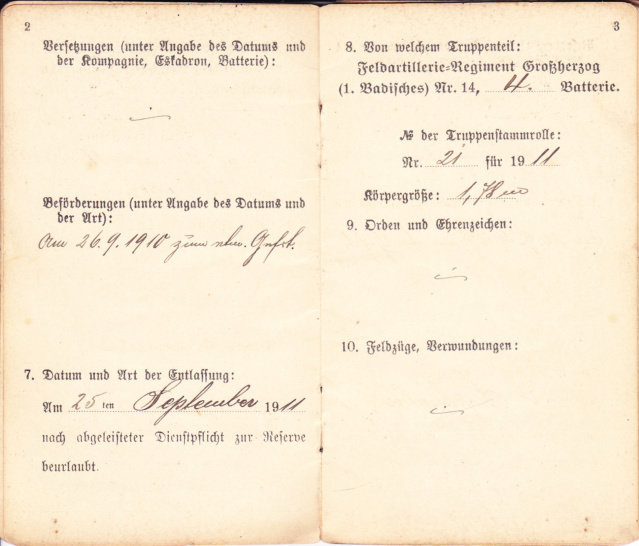 2
Versetzungen (unter Angabe des Datums und
der Kompagnie, Eskadron, Batterie):
Beförderungen (unter Angabe des Datums und
der Art):
Am 26.9.1910 zum Gefrt.
7. Datum und Art der Entlassung:
Am 25ten September 1911
nach abgeleisteter Dienstpflicht zur Reserve
beurlaubt.
3
8. Von welchem Truppenteil:
Feldartillerie-Regiment Großherzog
(1. Badisches) Nr. 14, 4. Batterie.
№ der Truppenstammrolle:
Nr. 21 für 1911
Körpergröße: 1,78 m
9. Orden und Ehrenzeichen:
10. Feldzüge, Verwundungen: